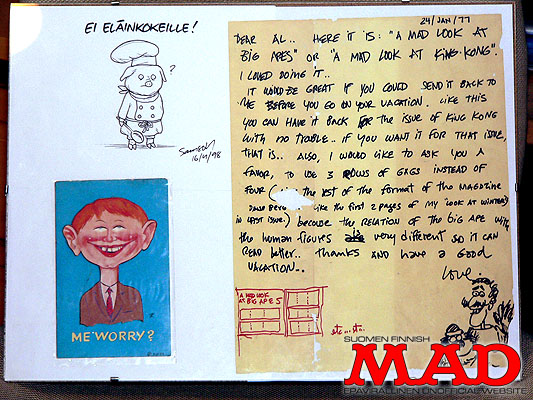 EI ELÄINKOKEILLE!
?
16/4/98
ME WORRY?
24/JAN/77
DEAR AL.. HERE IT IS: "A MAD LOOK AT
BIG APES" OR "A MAD LOOK AT KING-KONG".
I LOVED DOING IT..
IT WOULD BE GREAT IF YOU COULD SEND IT BACK TO
ME BEFORE YOU GO ON YOUR VACATION. LIKE THIS
YOU CAN HAVE IT BACK FOR THE ISSUE OF KING KONG
WITH NO TROUBLE.. IF YOU WANT IT FOR THAT ISSUE,
THAT IS.. ALSO, I WOULD LIKE TO ASK YOU A
FAVOR, TO USE 3 ROWS OF GAGS INSTEAD OF
FOUR ( the rest of the format of the magazine
DAVE BERG like the first 2 pages of my "look at winter"
in last issue.) because the relation of the big ape with
the human figures is very different so it can
READ better.. thanks AND have a good
VACATION..
Love.
A MAD LOOK
AT BIG APES
etc...etc..
SUOMEN FINNISH
MAD
EPÄVIRALLINEN UNOFFICIAL WEBSITE